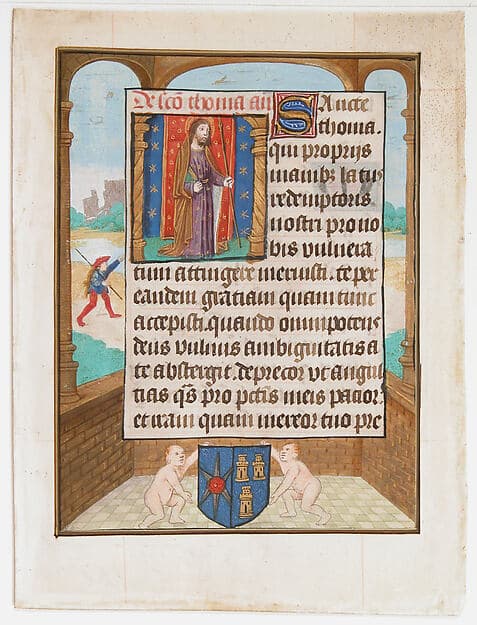 De scō thoma añ
Sancte
thoma.
qui proprijs
manibꝫ latus
redemptoris
nostri pro no
bis vulnera
tum attingere meruisti. te per
eandem gratiam quam tunc
accepisti. quando omnipotens
deus vulnus ambiguitatis a
te abstergit. deprecor vt angus
tias qs̄ pro pctīs meis patior.
et iram quam mereor tuo pre